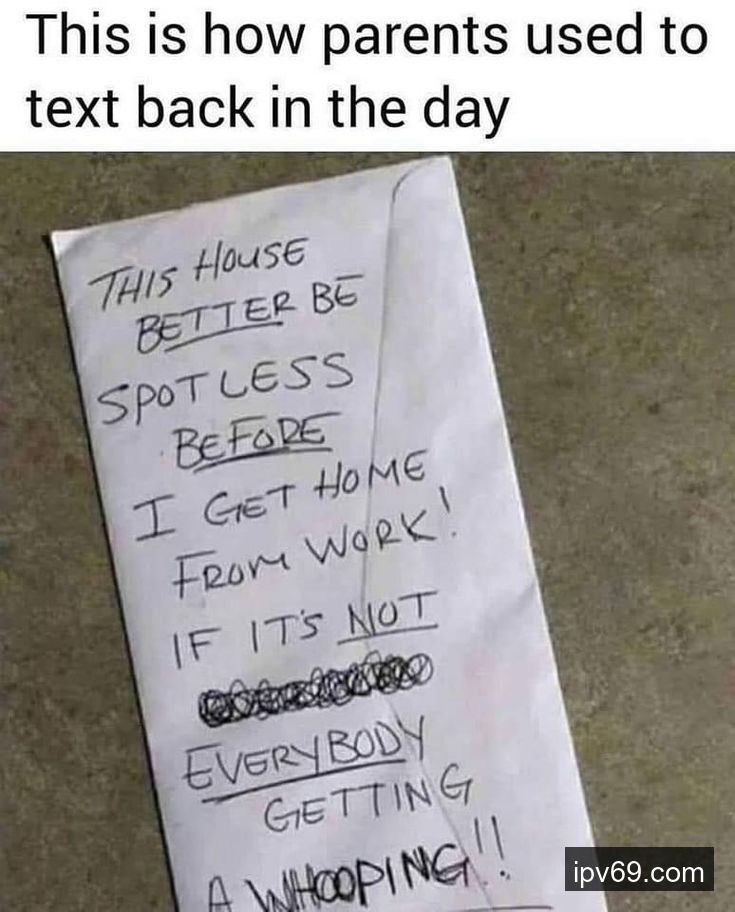 This is how parents used to
text back in the day
THIS HOUSE
BETTER BE
SPOTLESS
BEFORE
I GET HOME
FROM WORK!
IF IT'S NOT
EVERYBODY
GETTING
A WHOOPING!!
ipv69.com